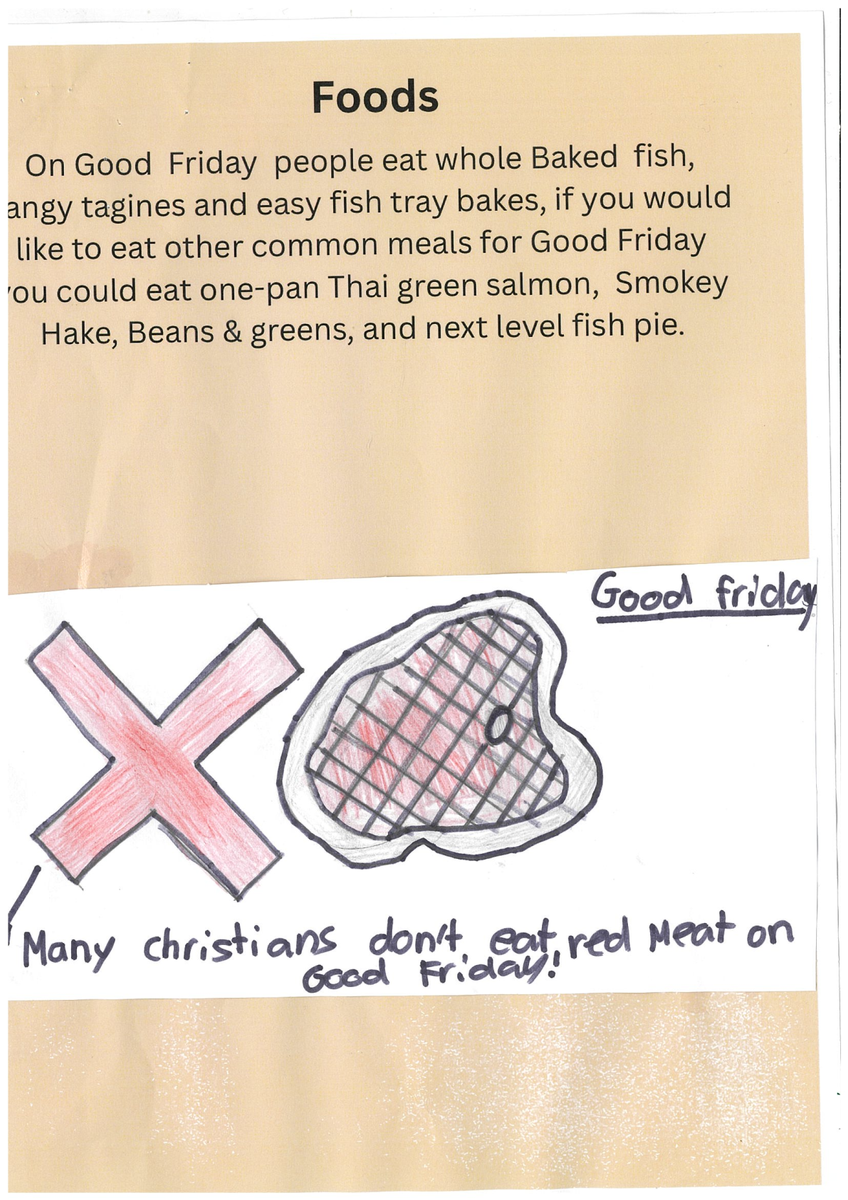 Foods
On Good Friday people eat whole Baked fish,
angy tagines and easy fish tray bakes, if you would
like to eat other common meals for Good Friday
ou could eat one-pan Thai green salmon, Smokey
Hake, Beans & greens, and next level fish pie.
Good friday
Many christians don't eat red Meat on
Good Friday!